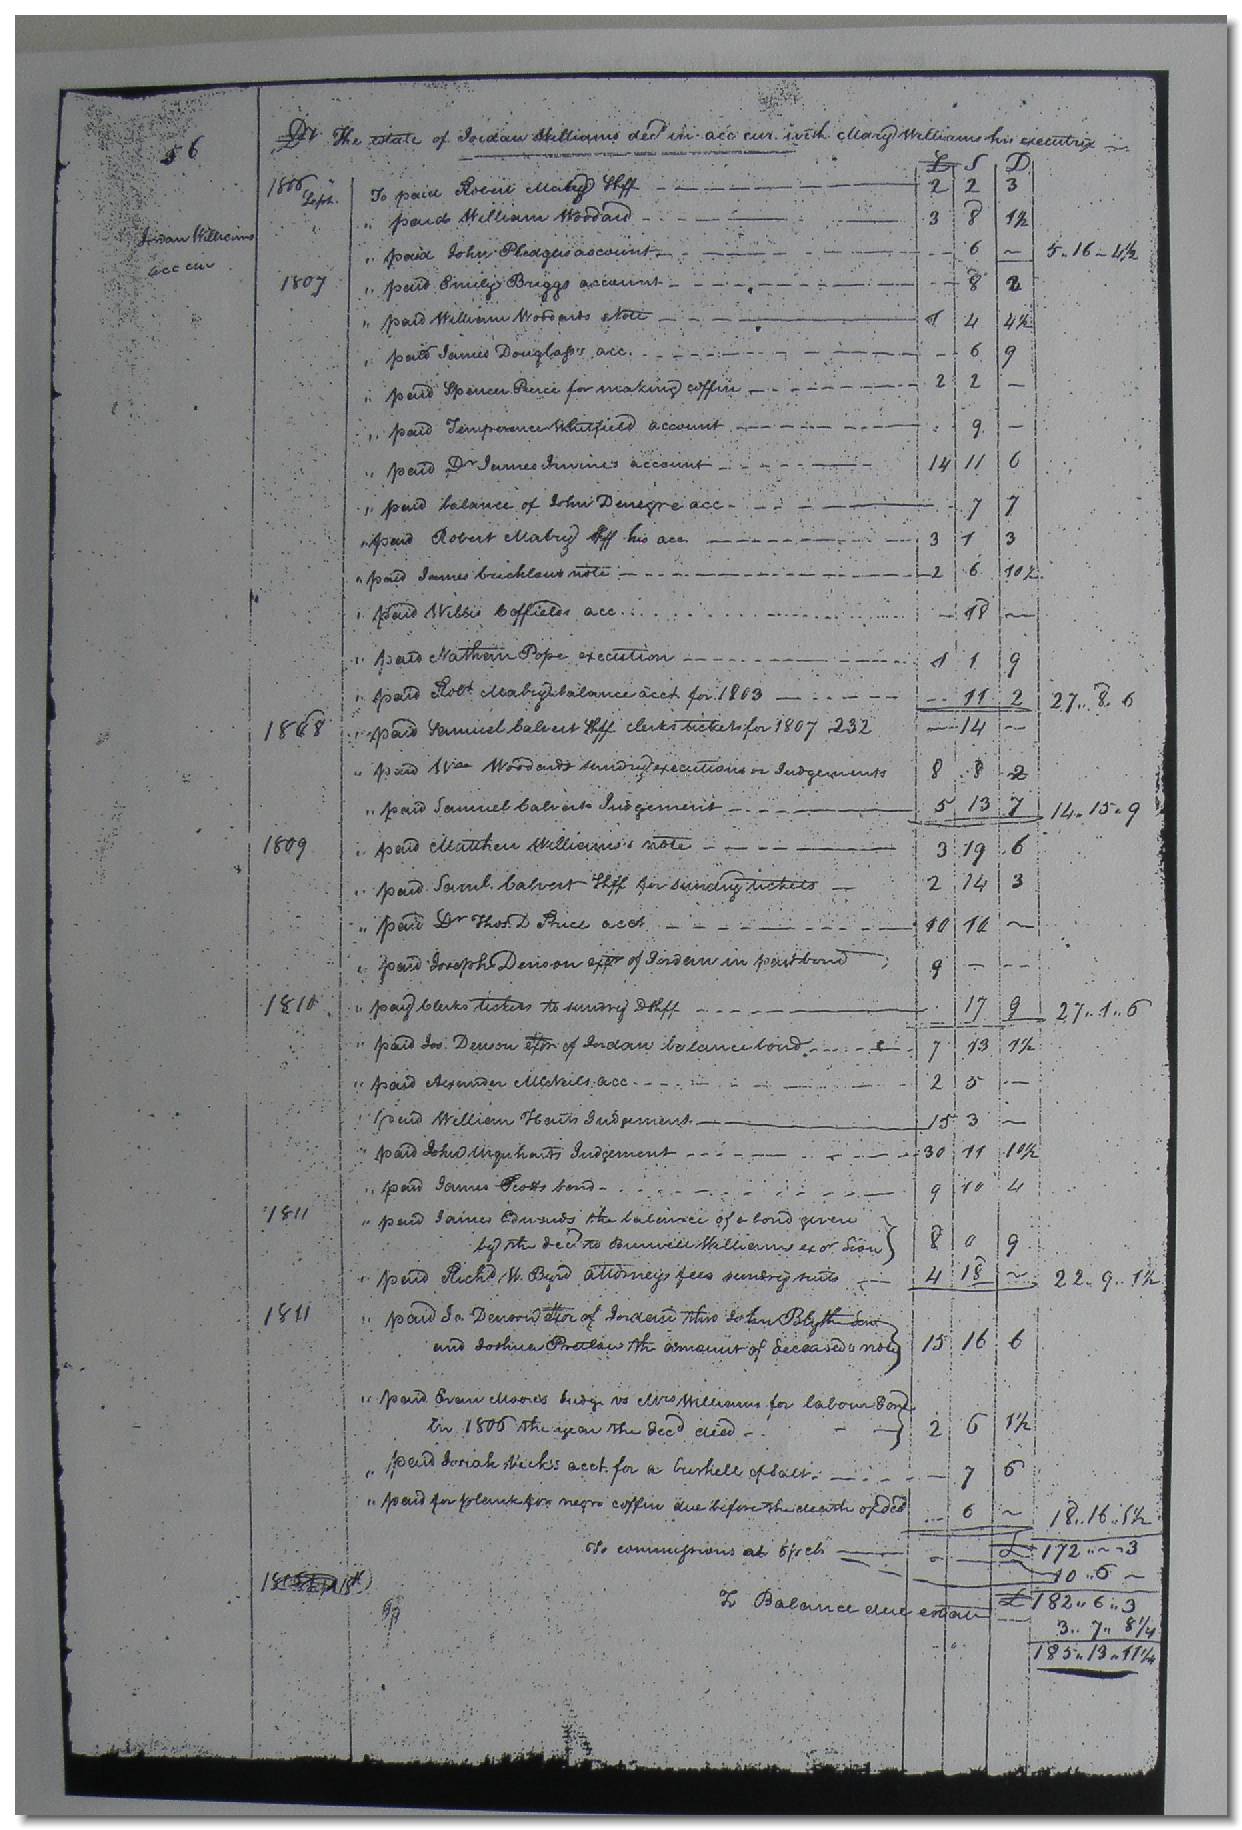 56
Dr The estate of Jordan Williams decd in acc cur. with Mary Williams his executrix
£ S D
Jordan Williams
acc cur
1806 Sept. To paid Robert Mabry Shff 2 2 3
" paid William Woodard 3 8 1½
" paid John Pledgers account 6 ~ 5..16..4½
1807 " paid Emily Briggs account 8 2
" paid William Woodards Note 1 4 4½
" paid James Douglass's acc. 6 9
" paid Spencer Pierce for making coffin 2 2 —
" paid Temperence Whitfield account 9 —
" paid Dr James Irwines account 14 11 6
" paid balance of John Denegre acc 7 7
" paid Robert Mabry Shff his acc 3 1 3
" paid James note 2 6 10½
" paid Willis Coffields acc — 18 —
" paid Nathern Pope execution 1 1 9
" paid Robt. Mabry balance acct for 1803 11 2 27..8..6
1808 " paid Samuel Calvert Shff clerks tickets for 1807 232 — 14 —
" paid Wm Woodards sundry executions or Judgements 8 8 2
" paid Samuel Calverts Judgement 5 13 7 14..15..9
1809 " paid Matthew Williams's note 3 19 6
" paid Saml. Calvert Shff for sundry tickets 2 14 3
" paid Dr Thos. D Price acct 10 10 ~
" paid Joseph Denson exor of Jordan in part bond 9 - --
1810 " paid Clerks tickets to sundry D Shff 17 9 27..1..6
" paid Jos. Denson exor of Jordan balance bond 7 13 1½
" paid McNeils acc 2 5 —
" paid William Harts Judgement 15 3 ~
" paid John Urquharts Judgement 30 11 10½
" paid James Scotts bond 9 10 4
1811 " paid James Edwards the balance of a bond given
by the decd to Williams exor 8 0 9
" paid Richd W. Byrd attorneys fees sundry suits 4 18 ~ 22..9..1½
1811 " paid Jo. Denson exor of Jordan thro John Blythe
and Joshua Pretlow the amount of deceased's note 15 16 6
" paid Evan Moores Judge vs Mrs Williams for labour done
in 1806 the year the decd died 2 6 1½
" paid Josiah Vicks's acct. for a bushell of salt 7 6
" paid for plank for negro coffin due before the death of decd 6 ~ 18..16..1½
To commissions at 6 pr ct £ 172..~..3
10..6..~
£ 182..6..3
To Balance due estate
3..7..8¼
185..13..11¼